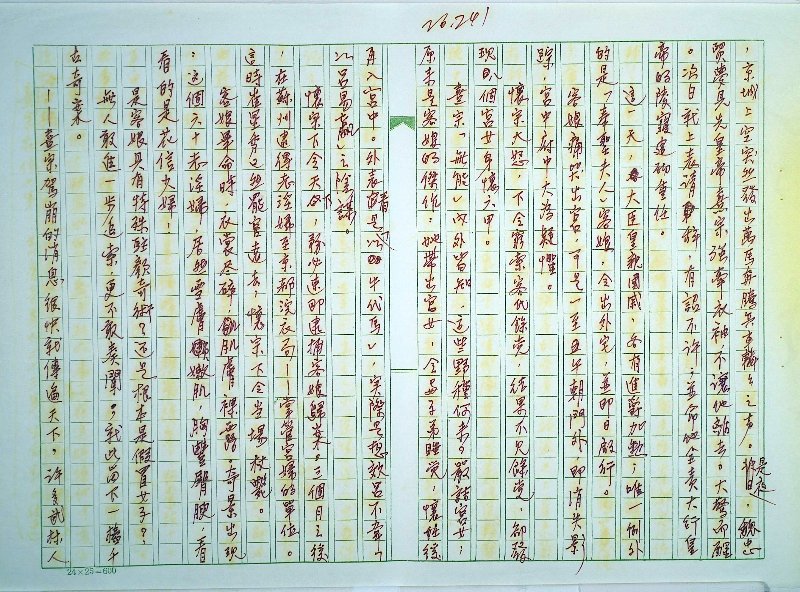 26.241
，京城上空突然發出萬馬奔騰兵交戰之聲。是夜，魏忠
賢夢見先皇帝熹宗強牽衣袖不讓他離去。大驚而醒
。次日就上表請辭，有詔不許；並命他全責大行皇
帝的陵寢建物重任。
這一天，大臣皇親國戚，各有進爵加勳；唯一例外
的是「奉聖夫人」客娘，令出外宅，並即日啟行。
客娘痛哭出宮，可是一至五午朝門外，即消失影
踪，宮中府中大為疑懼。
懷宗大怒，下令窮索客氏餘黨，結果不見餘黨，卻發
現八個宮女身懷六甲。
熹宗「無能」內外皆知，這些野種何來？嚴詰宮女：
原來是客娘的傑作，她帶出宮女，令其子弟睡覺，懷妊後
再入宮中。外表看是以「牛代馬」，實際是想效呂不韋「
以呂易嬴」之陰謀。
懷宗下令天下，務必速即逮捕客娘歸案。三個月之後
，在蘇州逮得老淫婦至京都浣衣局——掌管宮婦的單位。
這時崔呈秀已然罷官遠去，懷宗下令當場杖斃。
客娘畢命時，衣裳尽碎，肌膚裸露，奇景出現
：這個六十老淫婦，居然雪膚嫩肌，胸豐臀腴，看
看的是花信少婦！
是客娘具有特殊駐顏奇術？還是根本是假冒女子？
無人敢進一步追索，更不敢奏聞。就此留下一樁千
古奇案。
——熹宗駕崩的消息，很快就傳遍天下。許多武林人
24×25=600